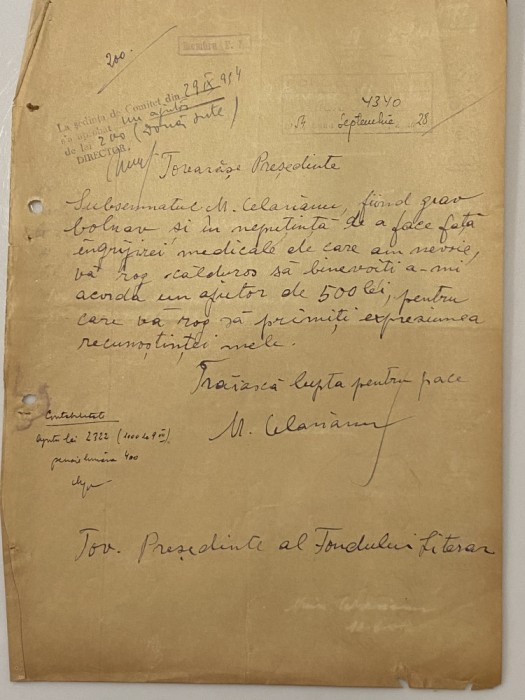 200.
Membru F. L.
La ședința de Comitet din 29 IX 954
s'a aprobat un ajutor
de lei 200 (Două sute)
DIRECTOR,
4340
954 Septembrie 28
Tovarășe Președinte
Subsemnatul M. Celarianu, fiind grav
bolnav și în neputință de a face față
îngrijirei medicale de care am nevoie,
vă rog călduros să binevoiți a-mi
acorda un ajutor de 500 lei, pentru
care vă rog să primiți expresiunea
recunoștinței mele.
Trăiască lupta pentru pace
M. Celarianu
Contabilitate
ajute lei 2322
400
Tov. Președinte al Fondului Literar